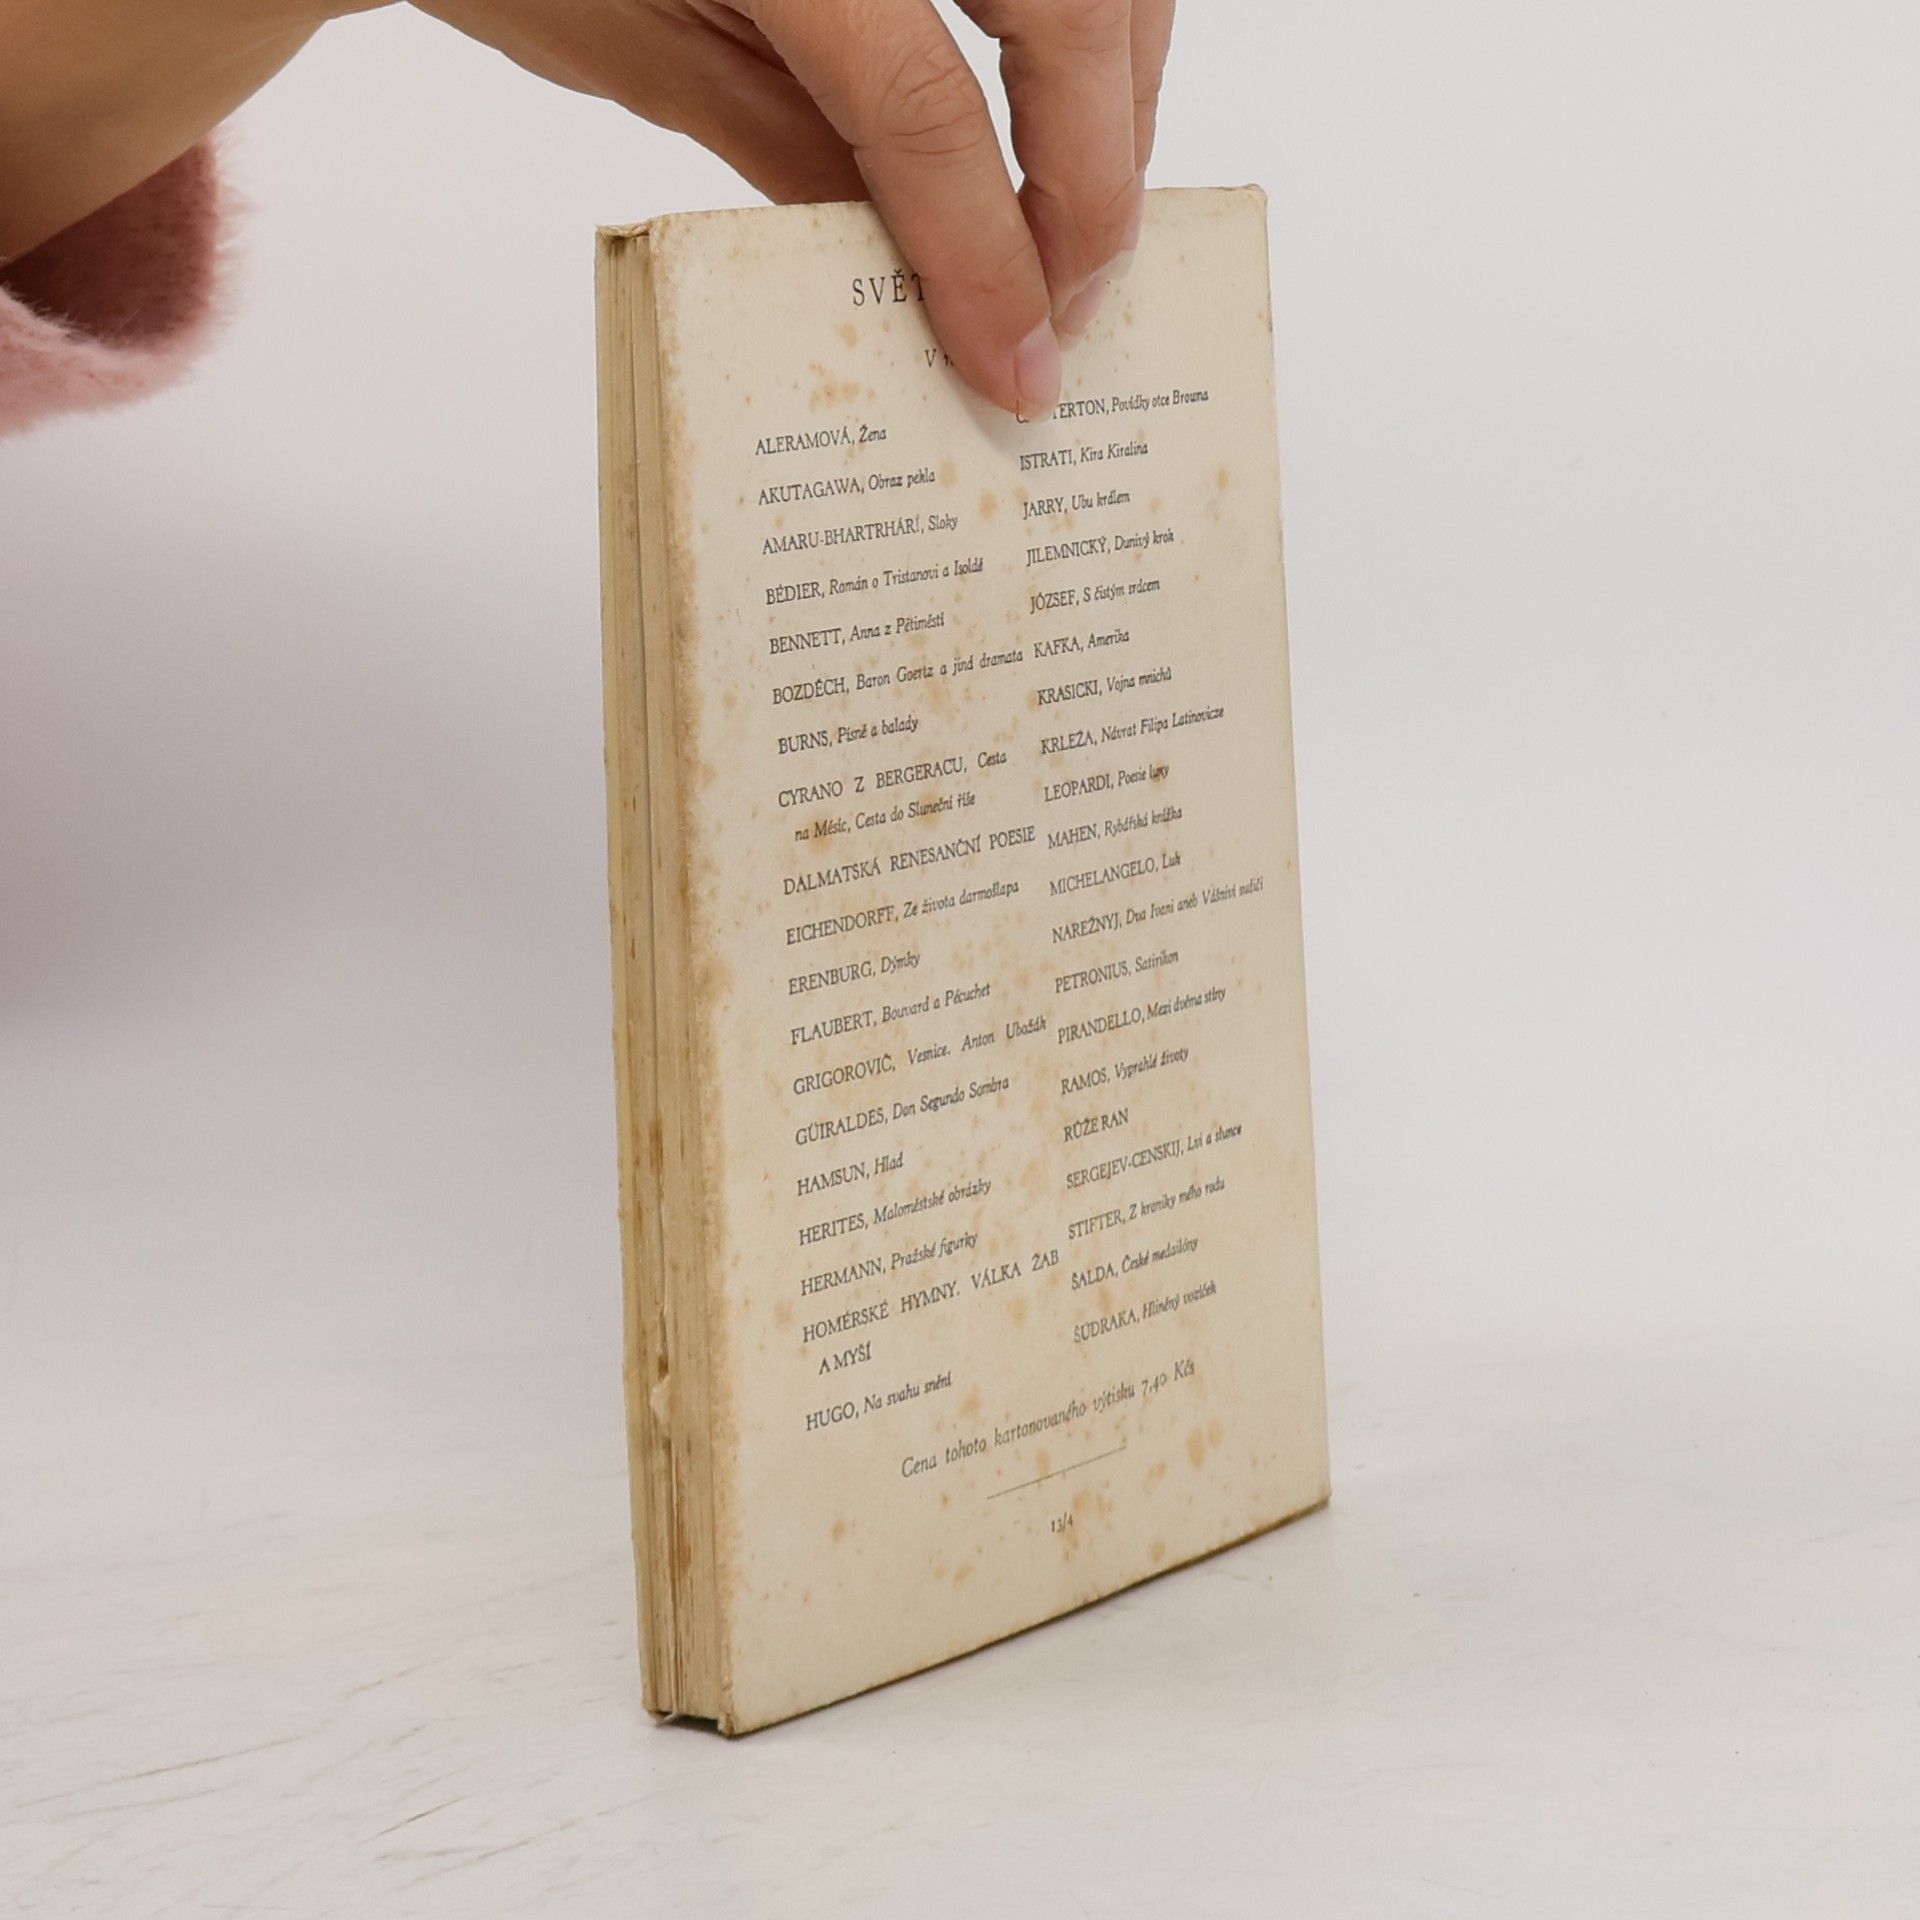 SVĚT
V
ALERAMOVÁ, Žena
AKUTAGAWA, Obraz pekla
AMARU-BHARTRHÁRÍ, Sloky
BÉDIER, Román o Tristanovi a Isoldě
BENNETT, Anna z Pětiměstí
BOZDĚCH, Baron Goertz a jiná dramata
BURNS, Písně a balady
CYRANO Z BERGERACU, Cesta
na Měsíc, Cesta do Sluneční říše
DALMATSKÁ RENESANČNÍ POESIE
EICHENDORFF, Ze života darmošlapa
ERENBURG, Dýmky
FLAUBERT, Bouvard a Pécuchet
GRIGOROVIČ, Vesnice. Anton Ubožák
GÜIRALDES, Don Segundo Sombra
HAMSUN, Hlad
HERITES, Maloměstské obrázky
HERMANN, Pražské figurky
HOMÉRSKÉ HYMNY. VÁLKA ŽAB
A MYŠÍ
HUGO, Na svahu snění
TERTON, Povídky otce Browna
ISTRATI, Kira Kiralina
JARRY, Ubu králem
JILEMNICKÝ, Dunivý krok
JÓZSEF, S čistým srdcem
KAFKA, Amerika
KRASICKI, Vojna mnichů
KRLEŽA, Návrat Filipa Latinovicze
LEOPARDI, Poesie luny
MAHEN, Rybářská knížka
MICHELANGELO, Luk
NAREŽNYJ, Dva Ivani aneb Vášniví sudiči
PETRONIUS, Satirikon
PIRANDELLO, Mezi dvěma stíny
RAMOS, Vyprahlé životy
RŮŽE RAN
SERGEJEV-CENSKIJ, Lvi a slunce
STIFTER, Z kroniky mého rodu
ŠALDA, České medailóny
ŠÚDRAKA, Hliněný vozíček
Cena tohoto kartonovaného výtisku 7,40 Kčs
13/4